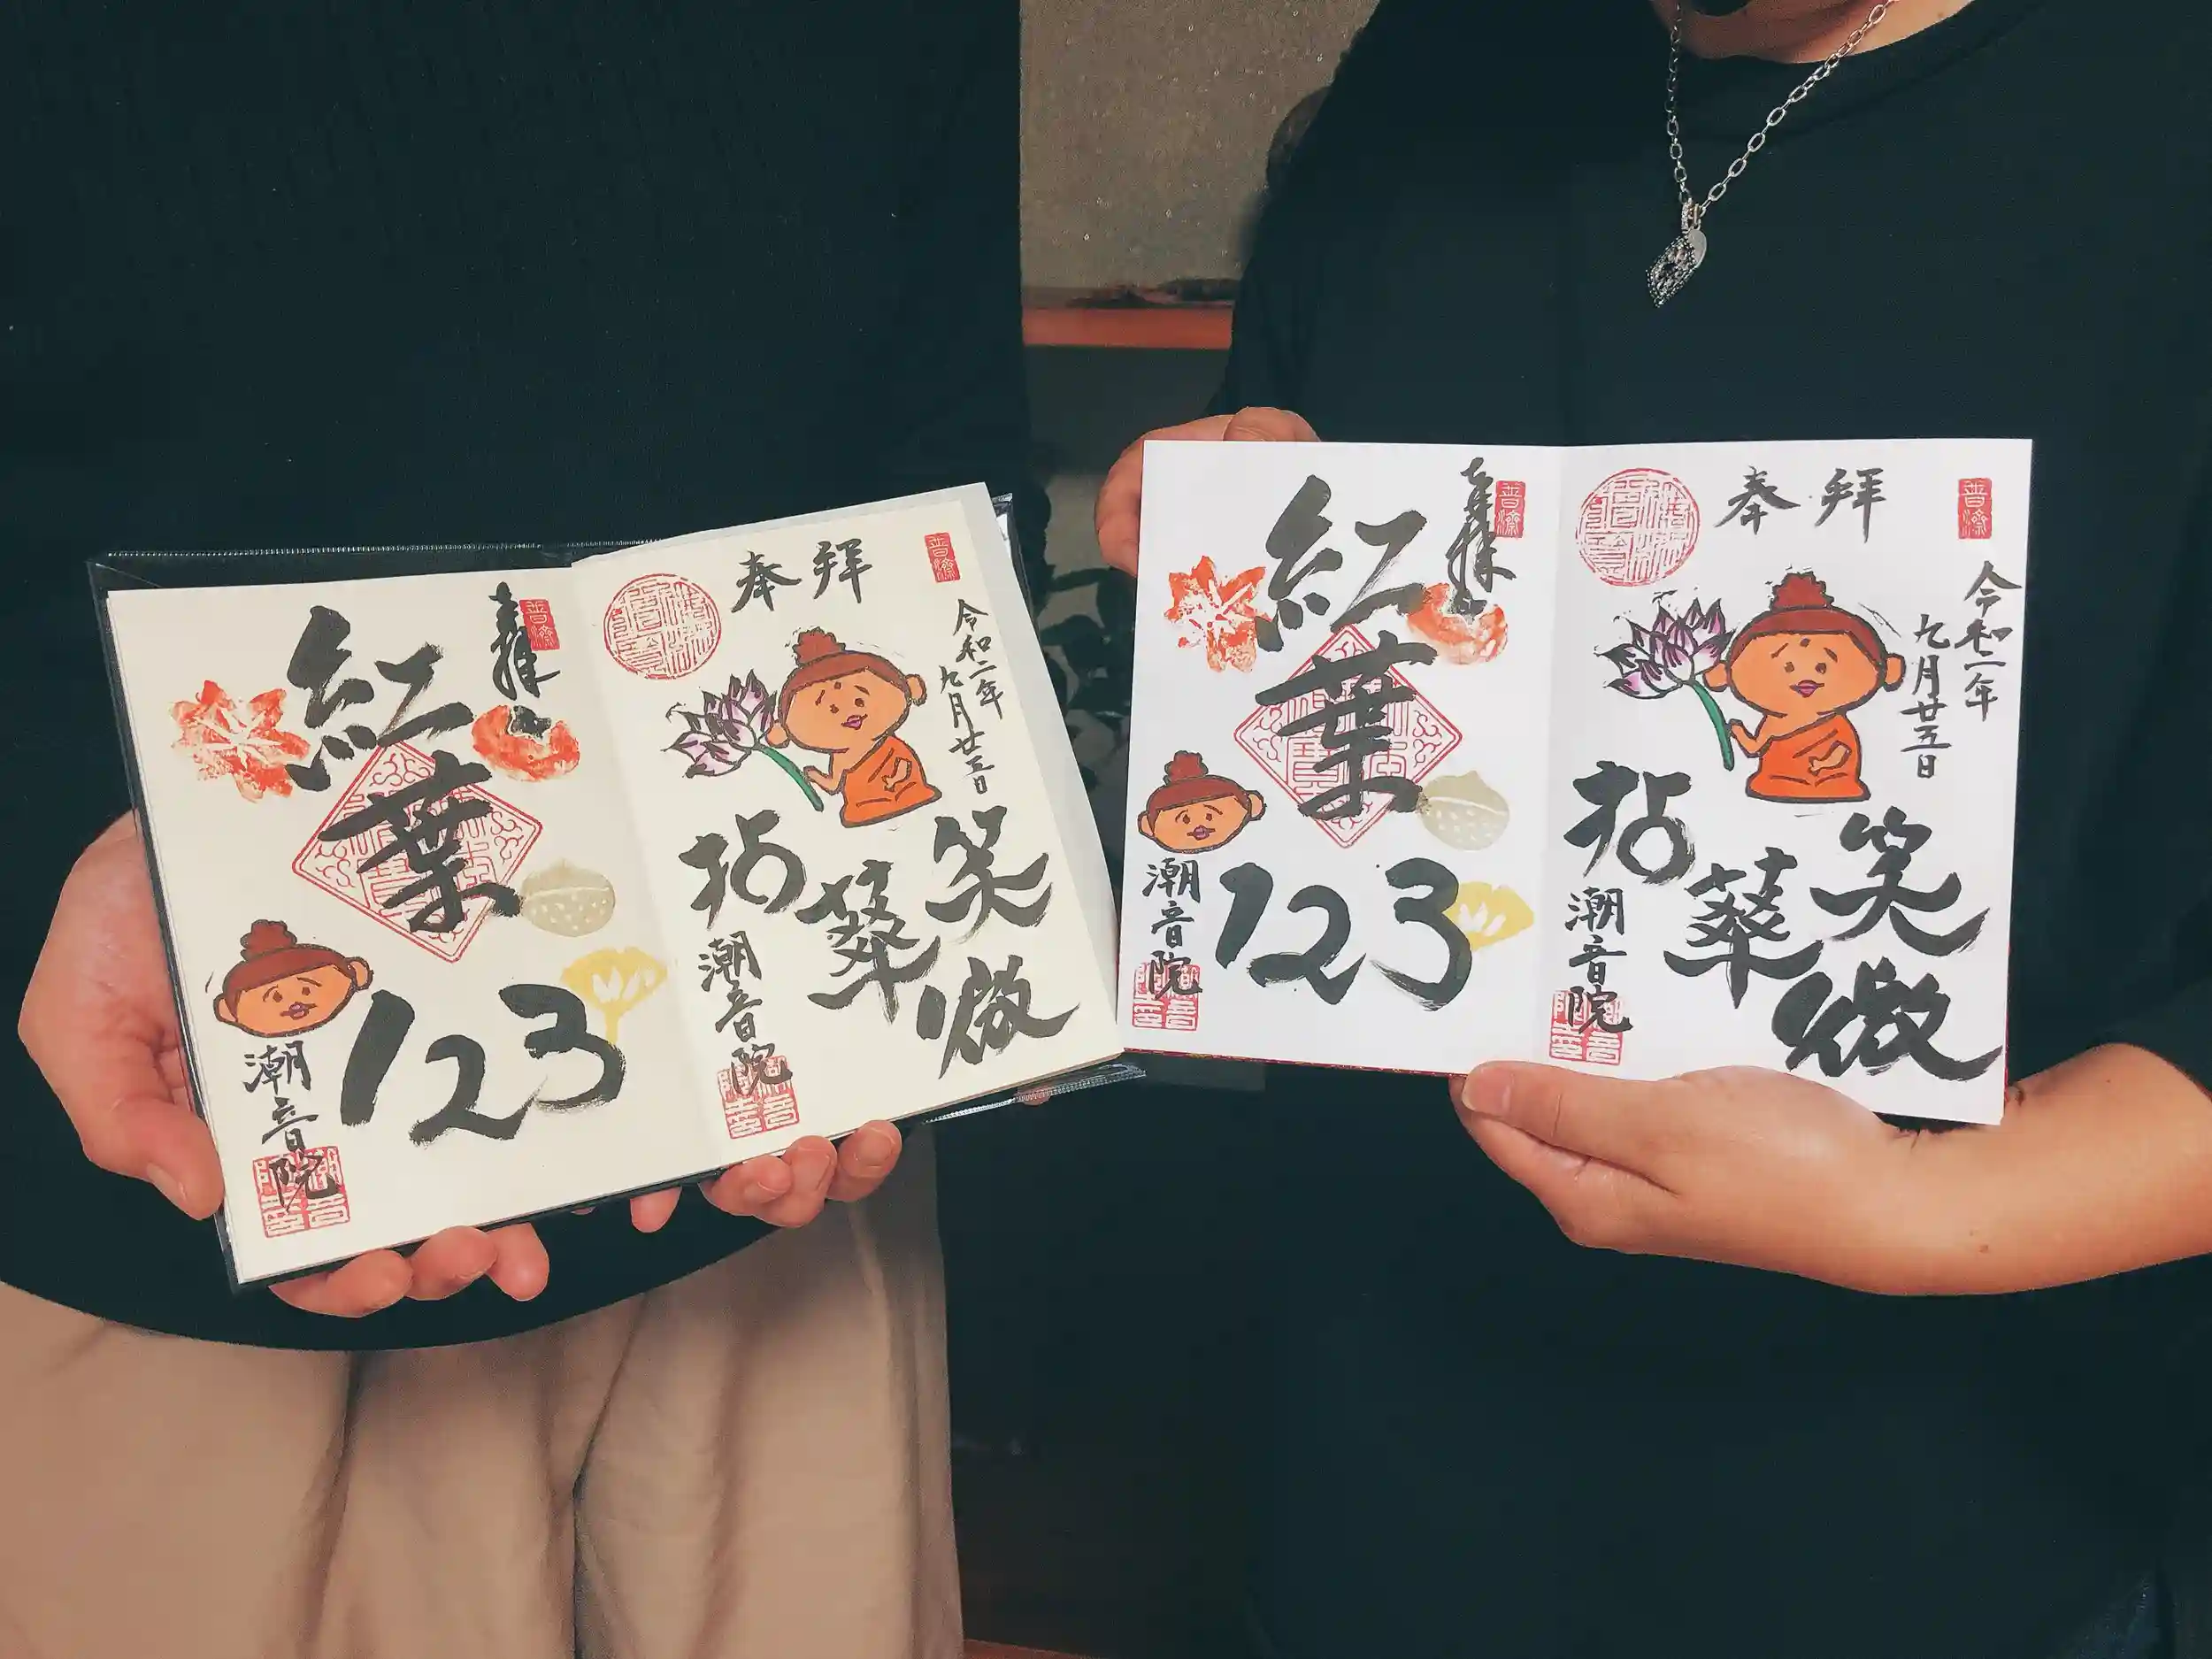 奉拝
令和二年
九月廿五日
拈華
微笑
潮音院
奉拝
紅葉
123
潮音院
奉拝
令和二年
九月廿五日
拈華
微笑
潮音院
奉拝
紅葉
123
潮音院